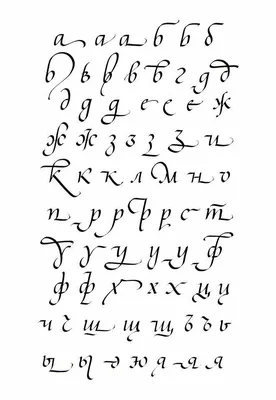 а а а б б б
в в в в г д
д д д е е е ж
ж ж з з з и
к к к л м н о
п р р р р с т
т у у у у ф
ф ф х х х ц ц
ч ч ш ш щ ъ ъ ы
ы ы ь э ю я я я